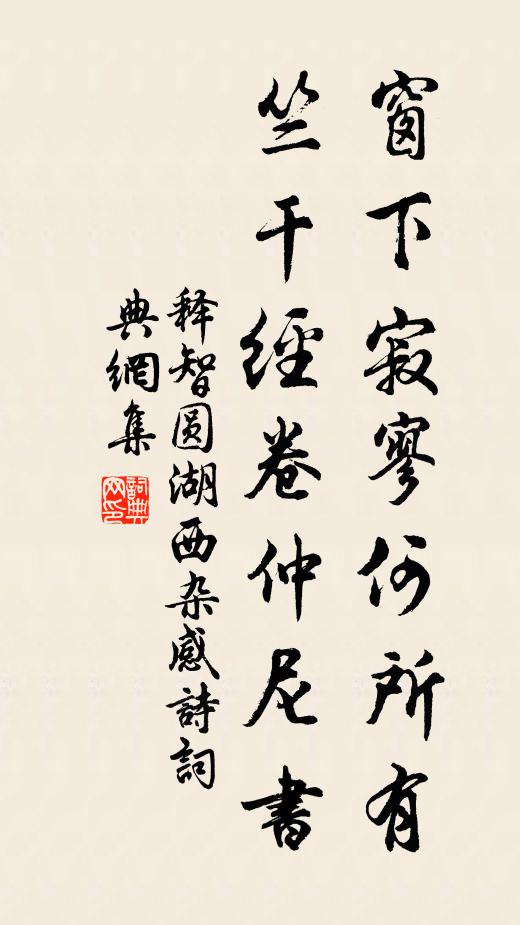 窗下寂寥何所有
竺干經卷仲尼書
释智圓湖西杂感詩詞
典網集
詞典网印